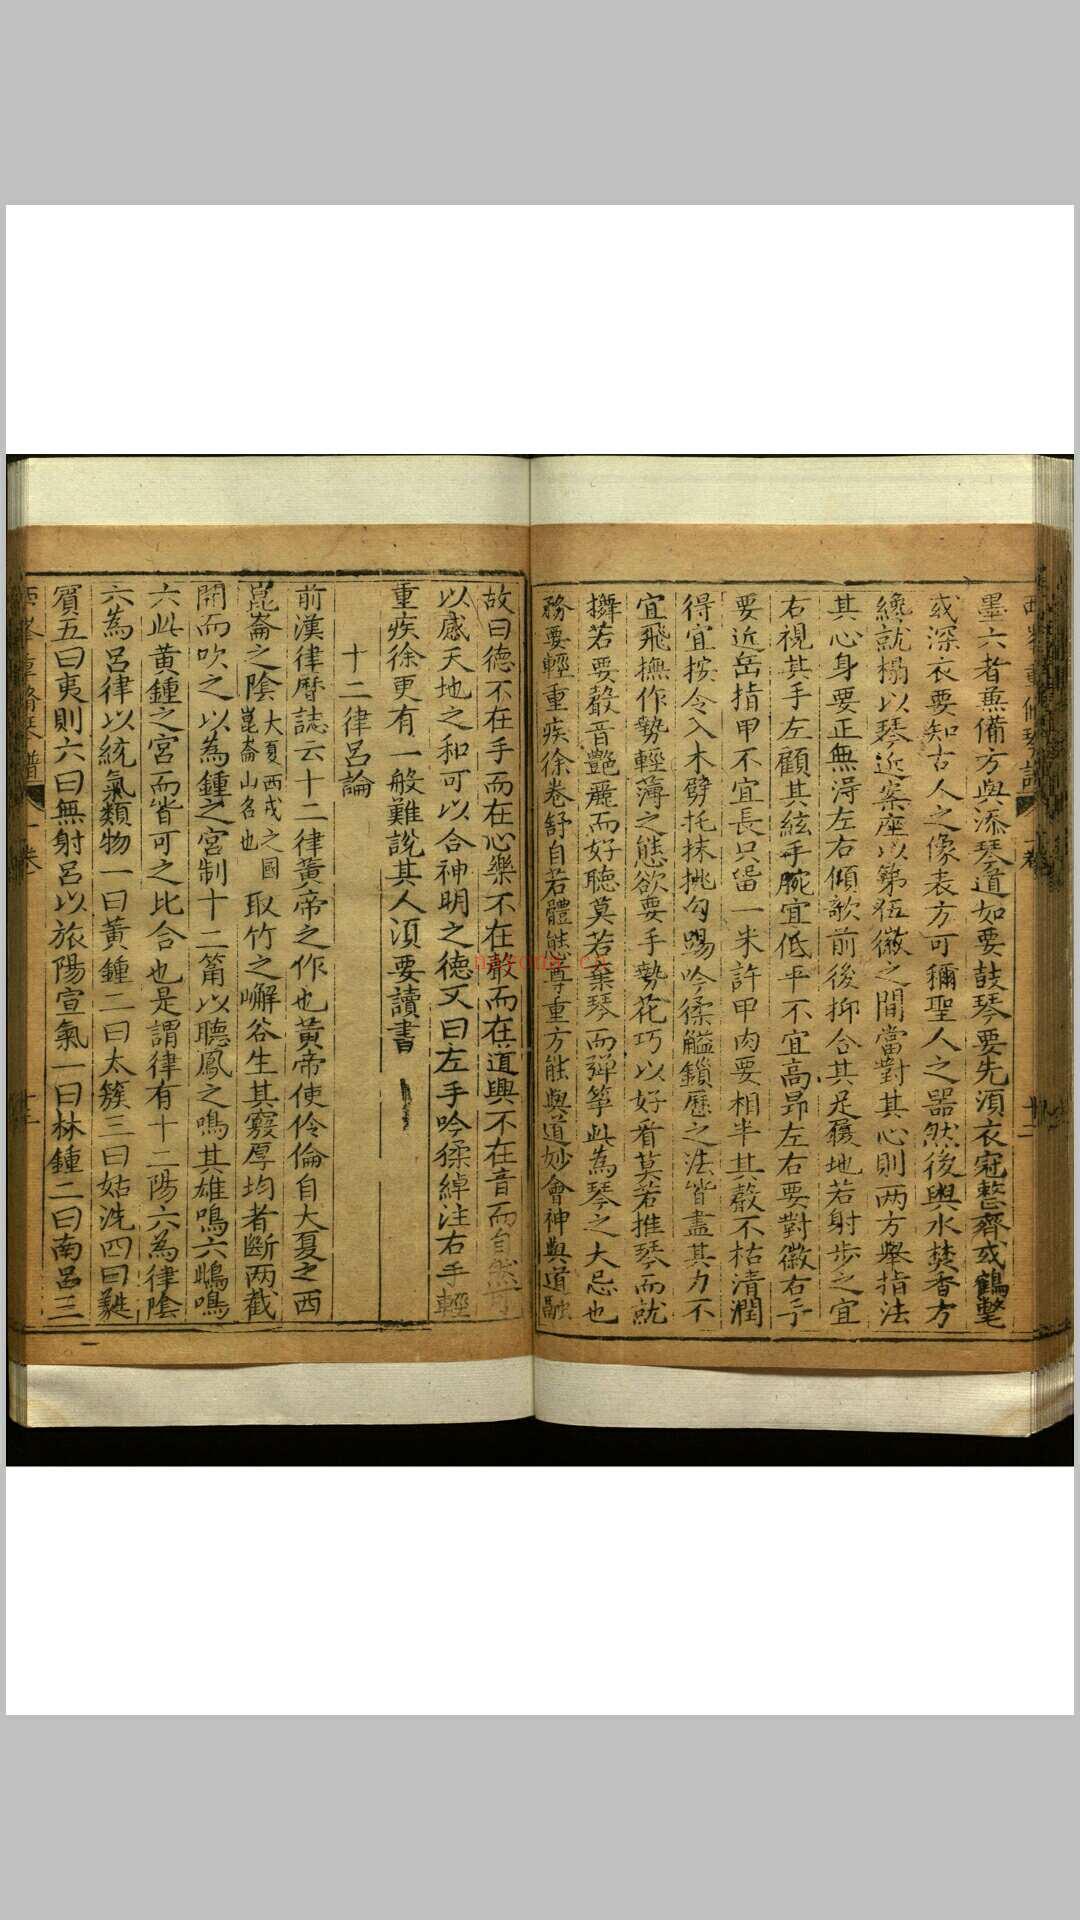 墨六者兼備方與添琴道如要鼓琴要先須衣冠整齊或鶴氅
或深衣要知古人之像表方可稱聖人之器然後與水焚香方
纔就榻以琴近案座以第伍徽之間當對其心則两方舉指法
其心身要正無淂左右傾欹前後抑合其足履地若射步之宜
右視其手左顧其絃手腕宜低平不宜高昂左右要對徽右手
要近岳指甲不宜長只留一米許甲肉要相半其聲不枯清潤
得宜按令入木劈托抹挑勾踢吟揉齪鎖歷之法皆盡其力不
宜飛撫作勢輕薄之態欲要手勢花巧以好看莫若推琴而就
舞若要聲音艷麗而好聽莫若棄琴而弹箏此為琴之大忌也
務要輕重疾徐卷舒自若體態尊重方能與道妙會神與道融
故曰德不在手而在心樂不在聲而在道興不在音而自然可
以感天地之和可以合神明之德又曰左手吟揉綽注右手輕
重疾徐更有一般難說其人須要讀書
十二律呂論
前漢律曆誌云十二律黃帝之作也黃帝使伶倫自大夏之西
崑崙之陰 大夏西戎之國 崑崙山名也 取竹之嶰谷生其竅厚均者斷两截
開而吹之以為鍾之宮制十二筩以聽鳳之鳴其雄鳴六鴫鳴
六此黃鍾之宮而皆可之比合也是謂律有十二陽六為律陰
六為呂律以統氣類物一曰黃鍾二曰太簇三曰姑洗四曰蕤
賓五曰夷則六曰無射呂以旅陽宣氣一曰林鍾二曰南呂三
重脩琴譜 一卷
naronn.cn